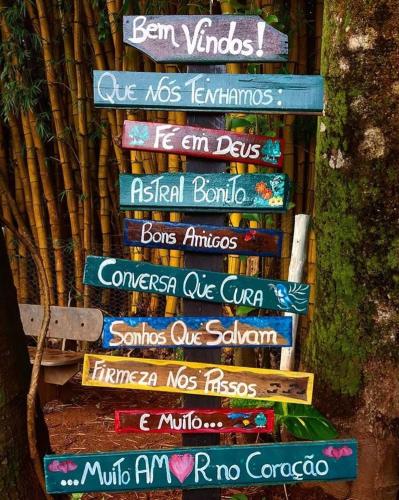 Bem Vindos!
Que nós Tenhamos:
Fé em Deus
Astral Bonito
Bons Amigos
Conversa Que Cura
Sonhos Que Salvam
Firmeza Nos Passos
E Muito...
...Muito AMOR no Coração